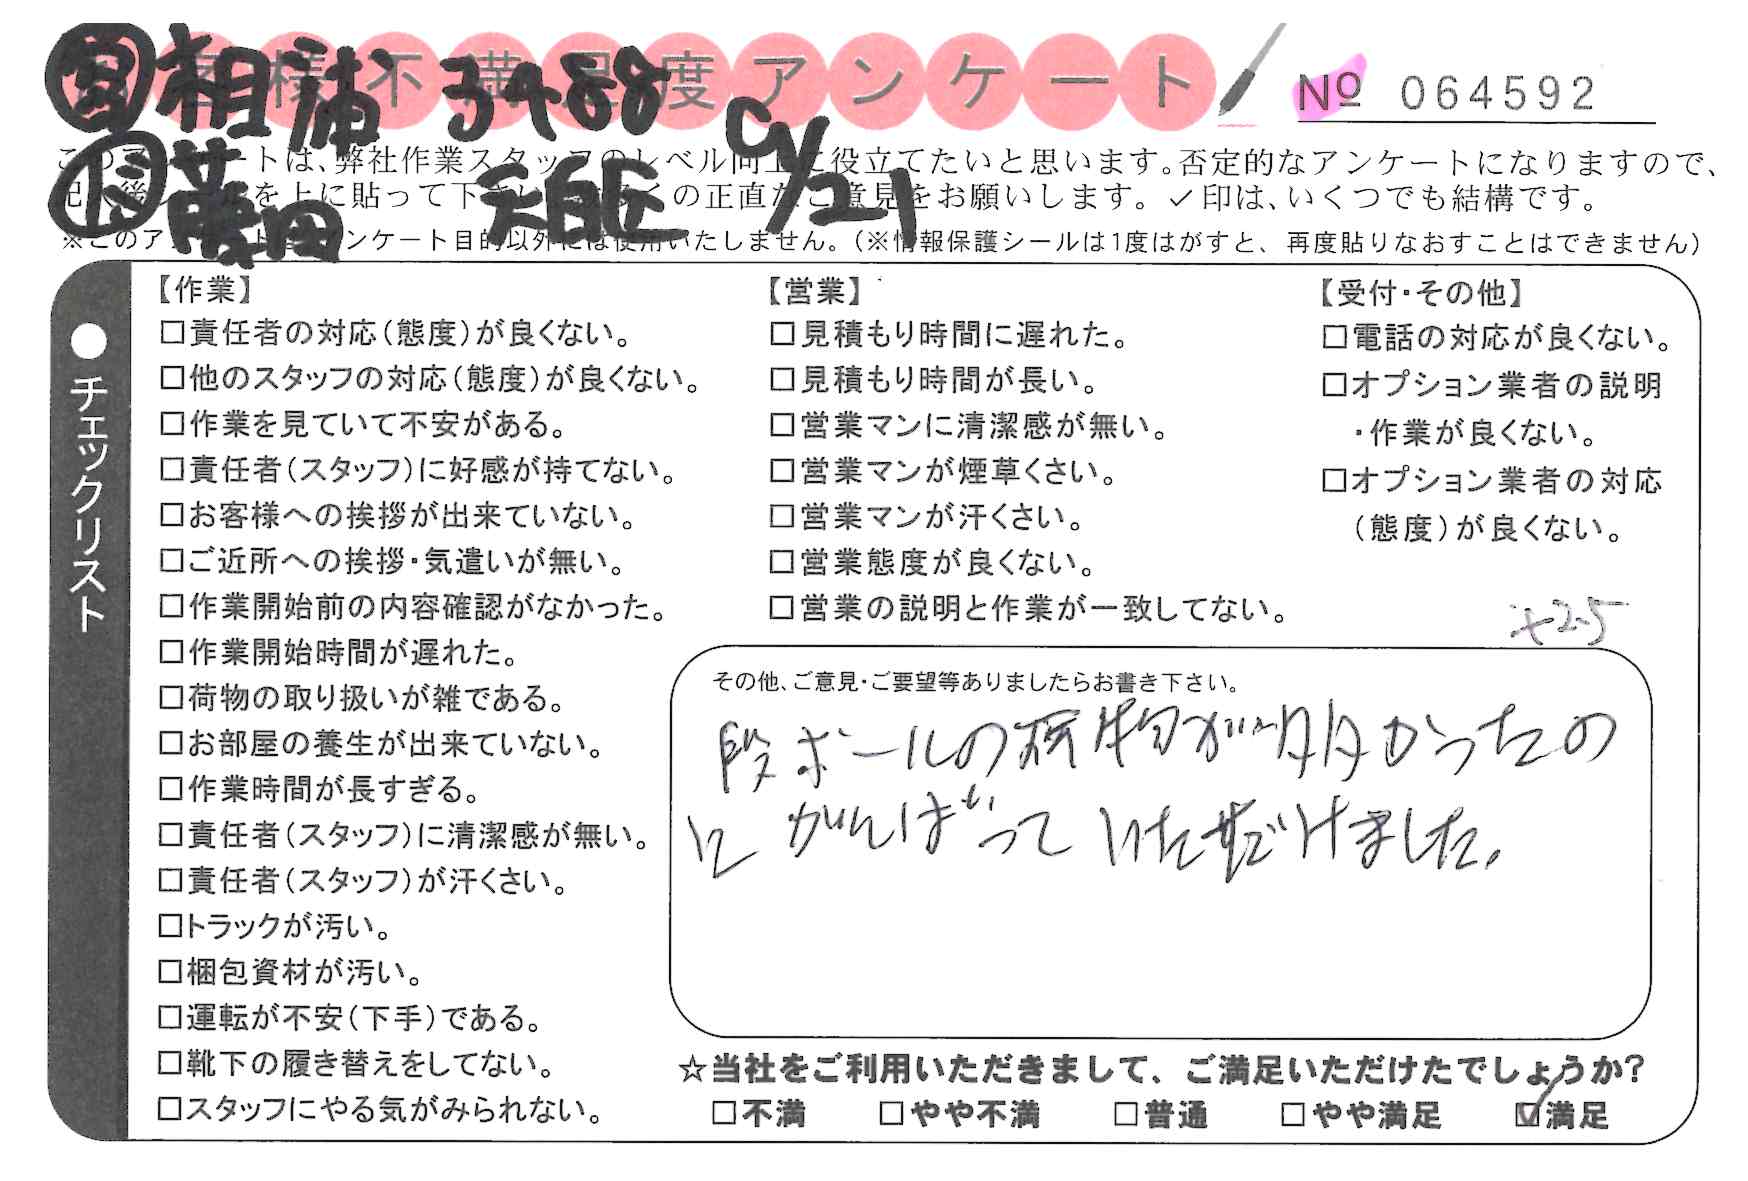 お客様不満足度アンケート
№ 064592
相浦 3488
藤田 天白区 9/21
このアンケートは、弊社作業スタッフのレベル向上に役立てたいと思います。否定的なアンケートになりますので、
を上に貼って下さい の正直なご意見をお願いします。✓印は、いくつでも結構です。
※このアンケートはアンケート目的以外には使用いたしません。(※情報保護シールは1度はがすと、再度貼りなおすことはできません)
●チェックリスト
【作業】
□責任者の対応(態度)が良くない。
□他のスタッフの対応(態度)が良くない。
□作業を見ていて不安がある。
□責任者(スタッフ)に好感が持てない。
□お客様への挨拶が出来ていない。
□ご近所への挨拶・気遣いが無い。
□作業開始前の内容確認がなかった。
□作業開始時間が遅れた。
□荷物の取り扱いが雑である。
□お部屋の養生が出来ていない。
□作業時間が長すぎる。
□責任者(スタッフ)に清潔感が無い。
□責任者(スタッフ)が汗くさい。
□トラックが汚い。
□梱包資材が汚い。
□運転が不安(下手)である。
□靴下の履き替えをしてない。
□スタッフにやる気がみられない。
【営業】
□見積もり時間に遅れた。
□見積もり時間が長い。
□営業マンに清潔感が無い。
□営業マンが煙草くさい。
□営業マンが汗くさい。
□営業態度が良くない。
□営業の説明と作業が一致してない。
【受付・その他】
□電話の対応が良くない。
□オプション業者の説明
・作業が良くない。
□オプション業者の対応
(態度)が良くない。
+2.5
その他、ご意見・ご要望等ありましたらお書き下さい。
段ボールの荷物が多かったの
に がんばって いただけました。
☆当社をご利用いただきまして、ご満足いただけたでしょうか?
□不満 □やや不満 □普通 □やや満足 ☑満足